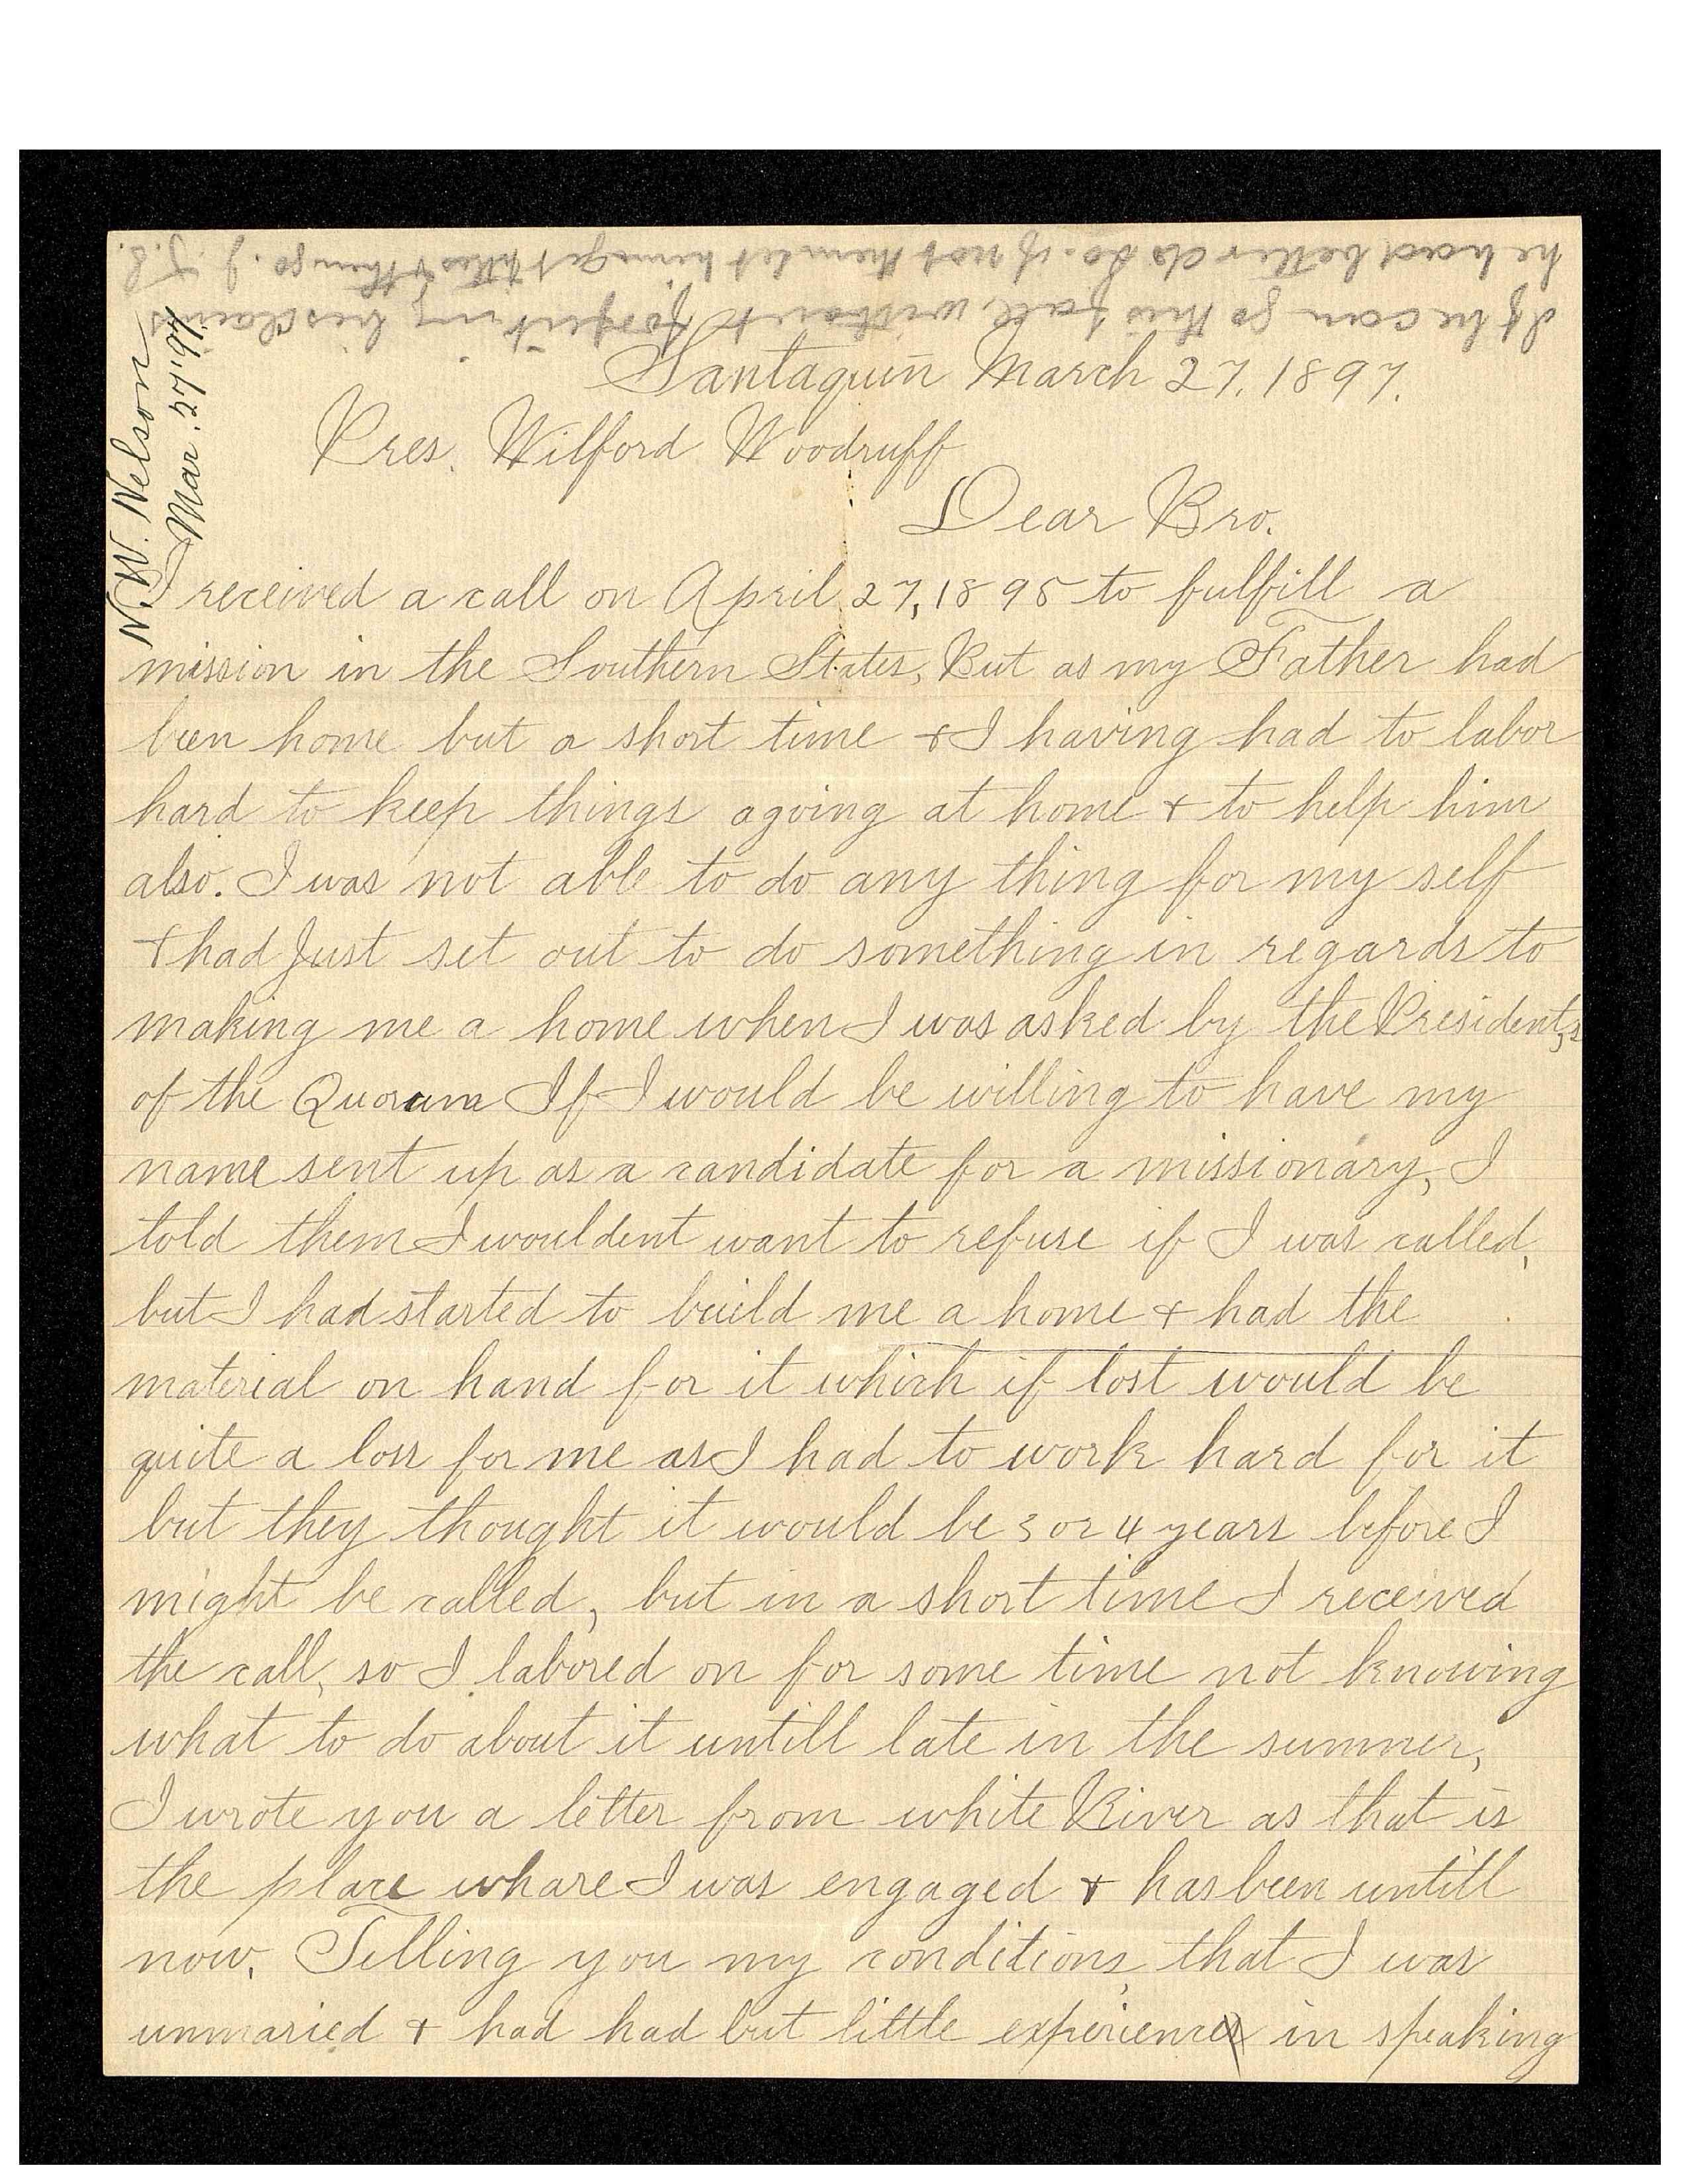 If he can go this fall, without forfeiting his claims
he had better do so. if not then let him get titles & then go. J. F. S.
N. W. Nelson
Mar. 27 '97
Santaquin March 27, 1897.
Pres. Wilford Woodruff
Dear Bro.
I received a call on April 27, 1895 to fulfill a
mission in the Southern States, But as my Father had
been home but a short time & I having had to labor
hard to keep things agoing at home & to help him
also. I was not able to do any thing for my self
& had Just set out to do something in regards to
making me a home when I was asked by the President,s
of the Quorum If I would be willing to have my
name sent up as a candidate for a missionary, I
told them I wouldent want to refuse if I was called,
but I had started to build me a home & had the
material on hand for it which if lost would be
quite a loss for me as I had to work hard for it
but they thought it would be 3 or 4 years before I
might be called, but in a short time I received
the call, so I labored on for some time not knowing
what to do about it untill late in the summer,
I wrote you a letter from white River as that is
the place whare I was engaged & has been untill
now. Telling you my conditions, that I was
unmaried & had had but little experience in speaking